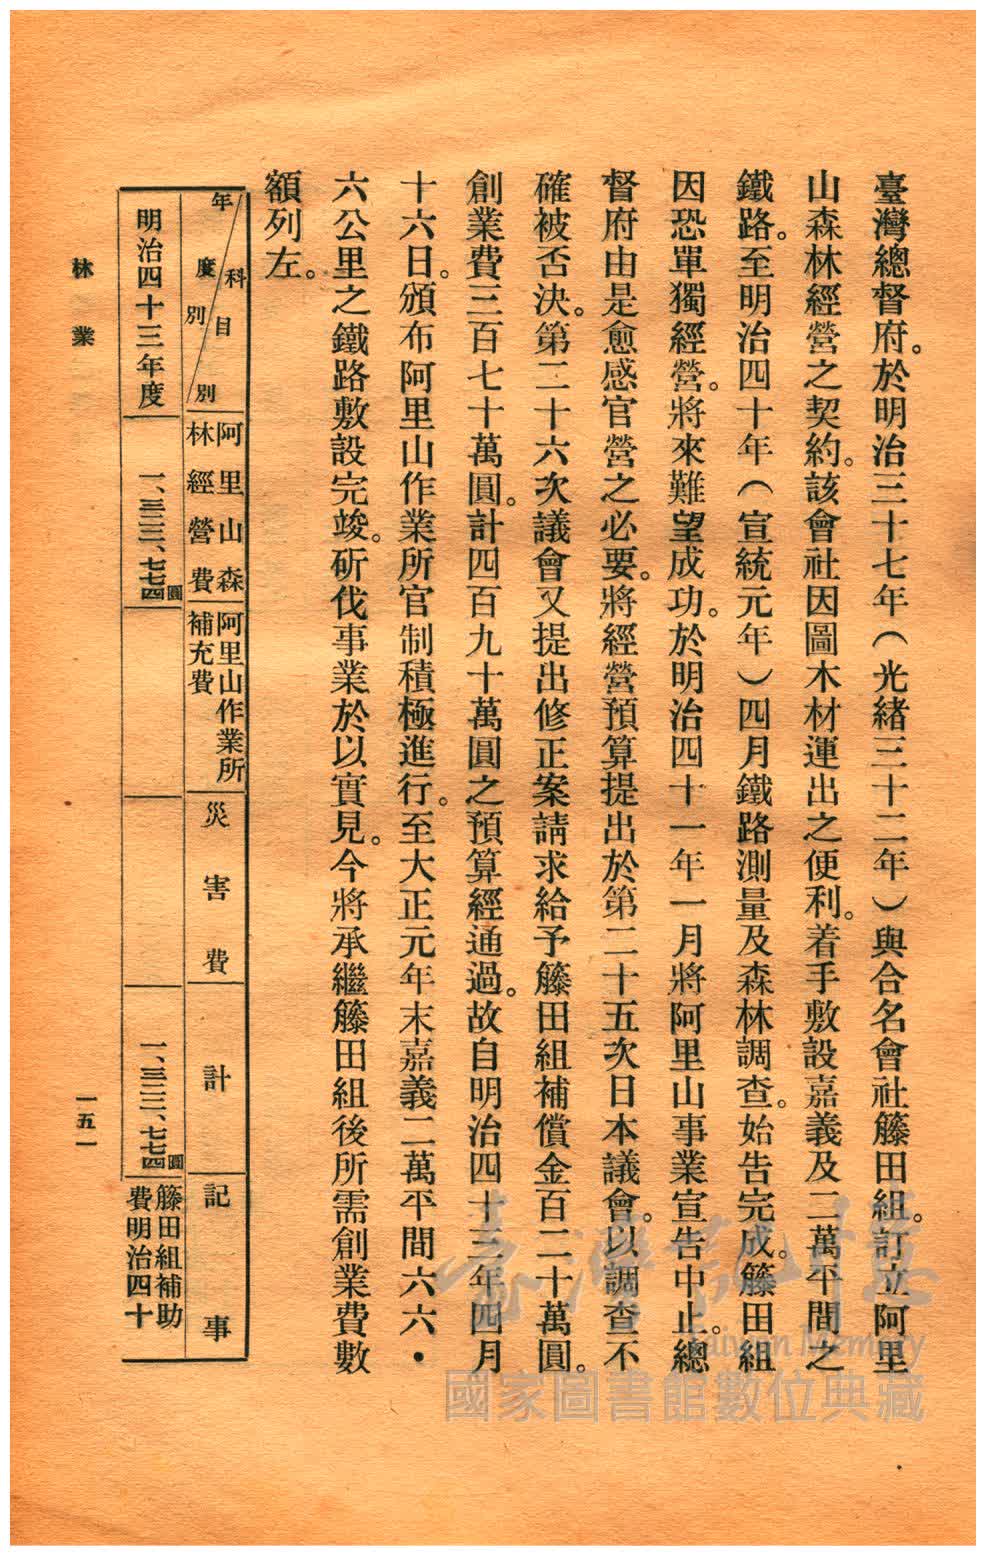 臺灣總督府。於明治三十七年（光緒三十二年）與合名會社籐田組。訂立阿里
山森林經營之契約。該會社因圖木材運出之便利。着手敷設嘉義及二萬平間之
鐵路。至明治四十年（宣統元年）四月鐵路測量及森林調查。始告完成。籐田組
因恐單獨經營。將來難望成功。於明治四十一年一月將阿里山事業宣告中止。總
督府由是愈感官營之必要。將經營預算提出於第二十五次日本議會。以調查不
確被否決。第二十六次議會又提出修正案請求給予籐田組補償金百二十萬圓。
創業費三百七十萬圓。計四百九十萬圓之預算經通過。故自明治四十三年四月
十六日。頒布阿里山作業所官制積極進行。至大正元年末嘉義二萬平間六六・
六公里之鐵路敷設完竣。斫伐事業於以實見。今將承繼籐田組後所需創業費數
額列左。
科目別
年度別
阿里山森
林經營費
阿里山作業所
補充費
災害費
計
記事
明治四十三年度
圓
一、三三三、七七四
圓
一、三三三、七七四
籐田組補助
費明治四十
林業
一五一
臺灣記憶
Taiwan Memory
國家圖書館數位典藏